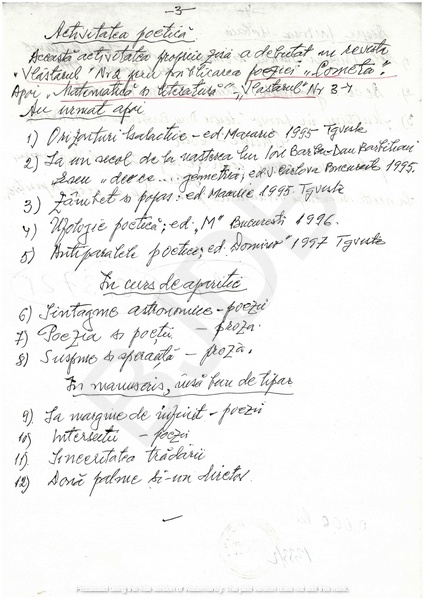 - 3 -
Activitatea poetică
Această activitatea propriu zisă a debutat in revista
„Vlăstarul" Nr 2 prin publicarea poeziei „Cometa".
Apoi „Matematică si literatură" - „Vlăstarul" Nr 3-4
Au urmat apoi
1) Orizonturi Galactice - ed Macarie 1995 Tgviste
2) La un secol de la nasterea lui Ion Barbu - Dan Barbilian
Eseu „de ce .... geometrie; ed V. Cârlova Bucuresti 1995.
3) Zâmbet si popas: ed Macarie 1995 Tgviste
4) Apologie poetică; ed. „M" Bucuresti 1996.
5) Antiparalele poetice; ed. 1997 Tgviste
În curs de aparitie
6) Sintagme astronomice - poezii
7) Poezia si poetii - proza.
8) Suspine si speranță - proză.
În manuscris, însă bun de tipar
9). La margine de infinit - poezii
10) Intersectii - poezii
11) Sinceritatea trădării
12) Două palme si-un director.